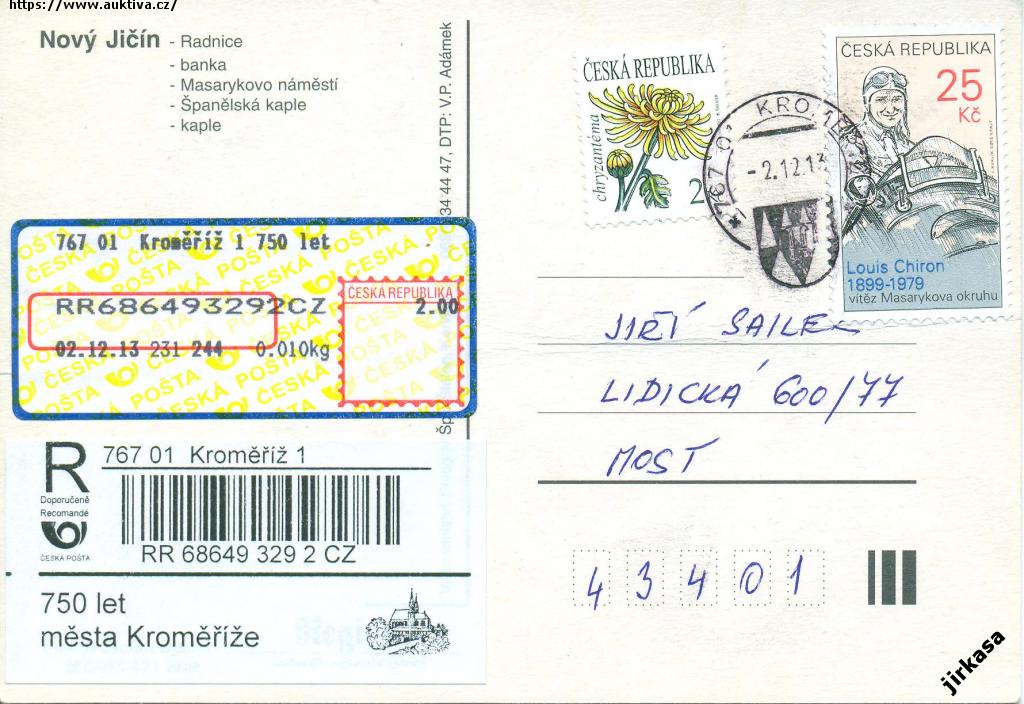 https://www.auktiva.cz/
Nový Jičín - Radnice
- banka
- Masarykovo náměstí
- Španělská kaple
- kaple
34 44 47, DTP: V.P. Adámek
ČESKÁ REPUBLIKA
chryzantéma
2
767 01 KROM
-2.12.13
ČESKÁ REPUBLIKA
25
Kč
Louis Chiron
1899-1979
vítěz Masarykova okruhu
767 01 Kroměříž 1 750 let
ČESKÁ POŠTA
RR686493292CZ
ČESKÁ REPUBLIKA
2.00
02.12.13 231 244 0.010kg
JIŘÍ
LIDICKÁ 600/77
MOST
43401
R
Doporučeně
Recomandé
ČESKÁ POŠTA
767 01 Kroměříž 1
RR 68649 329 2 CZ
750 let
města Kroměříže
jirkasa